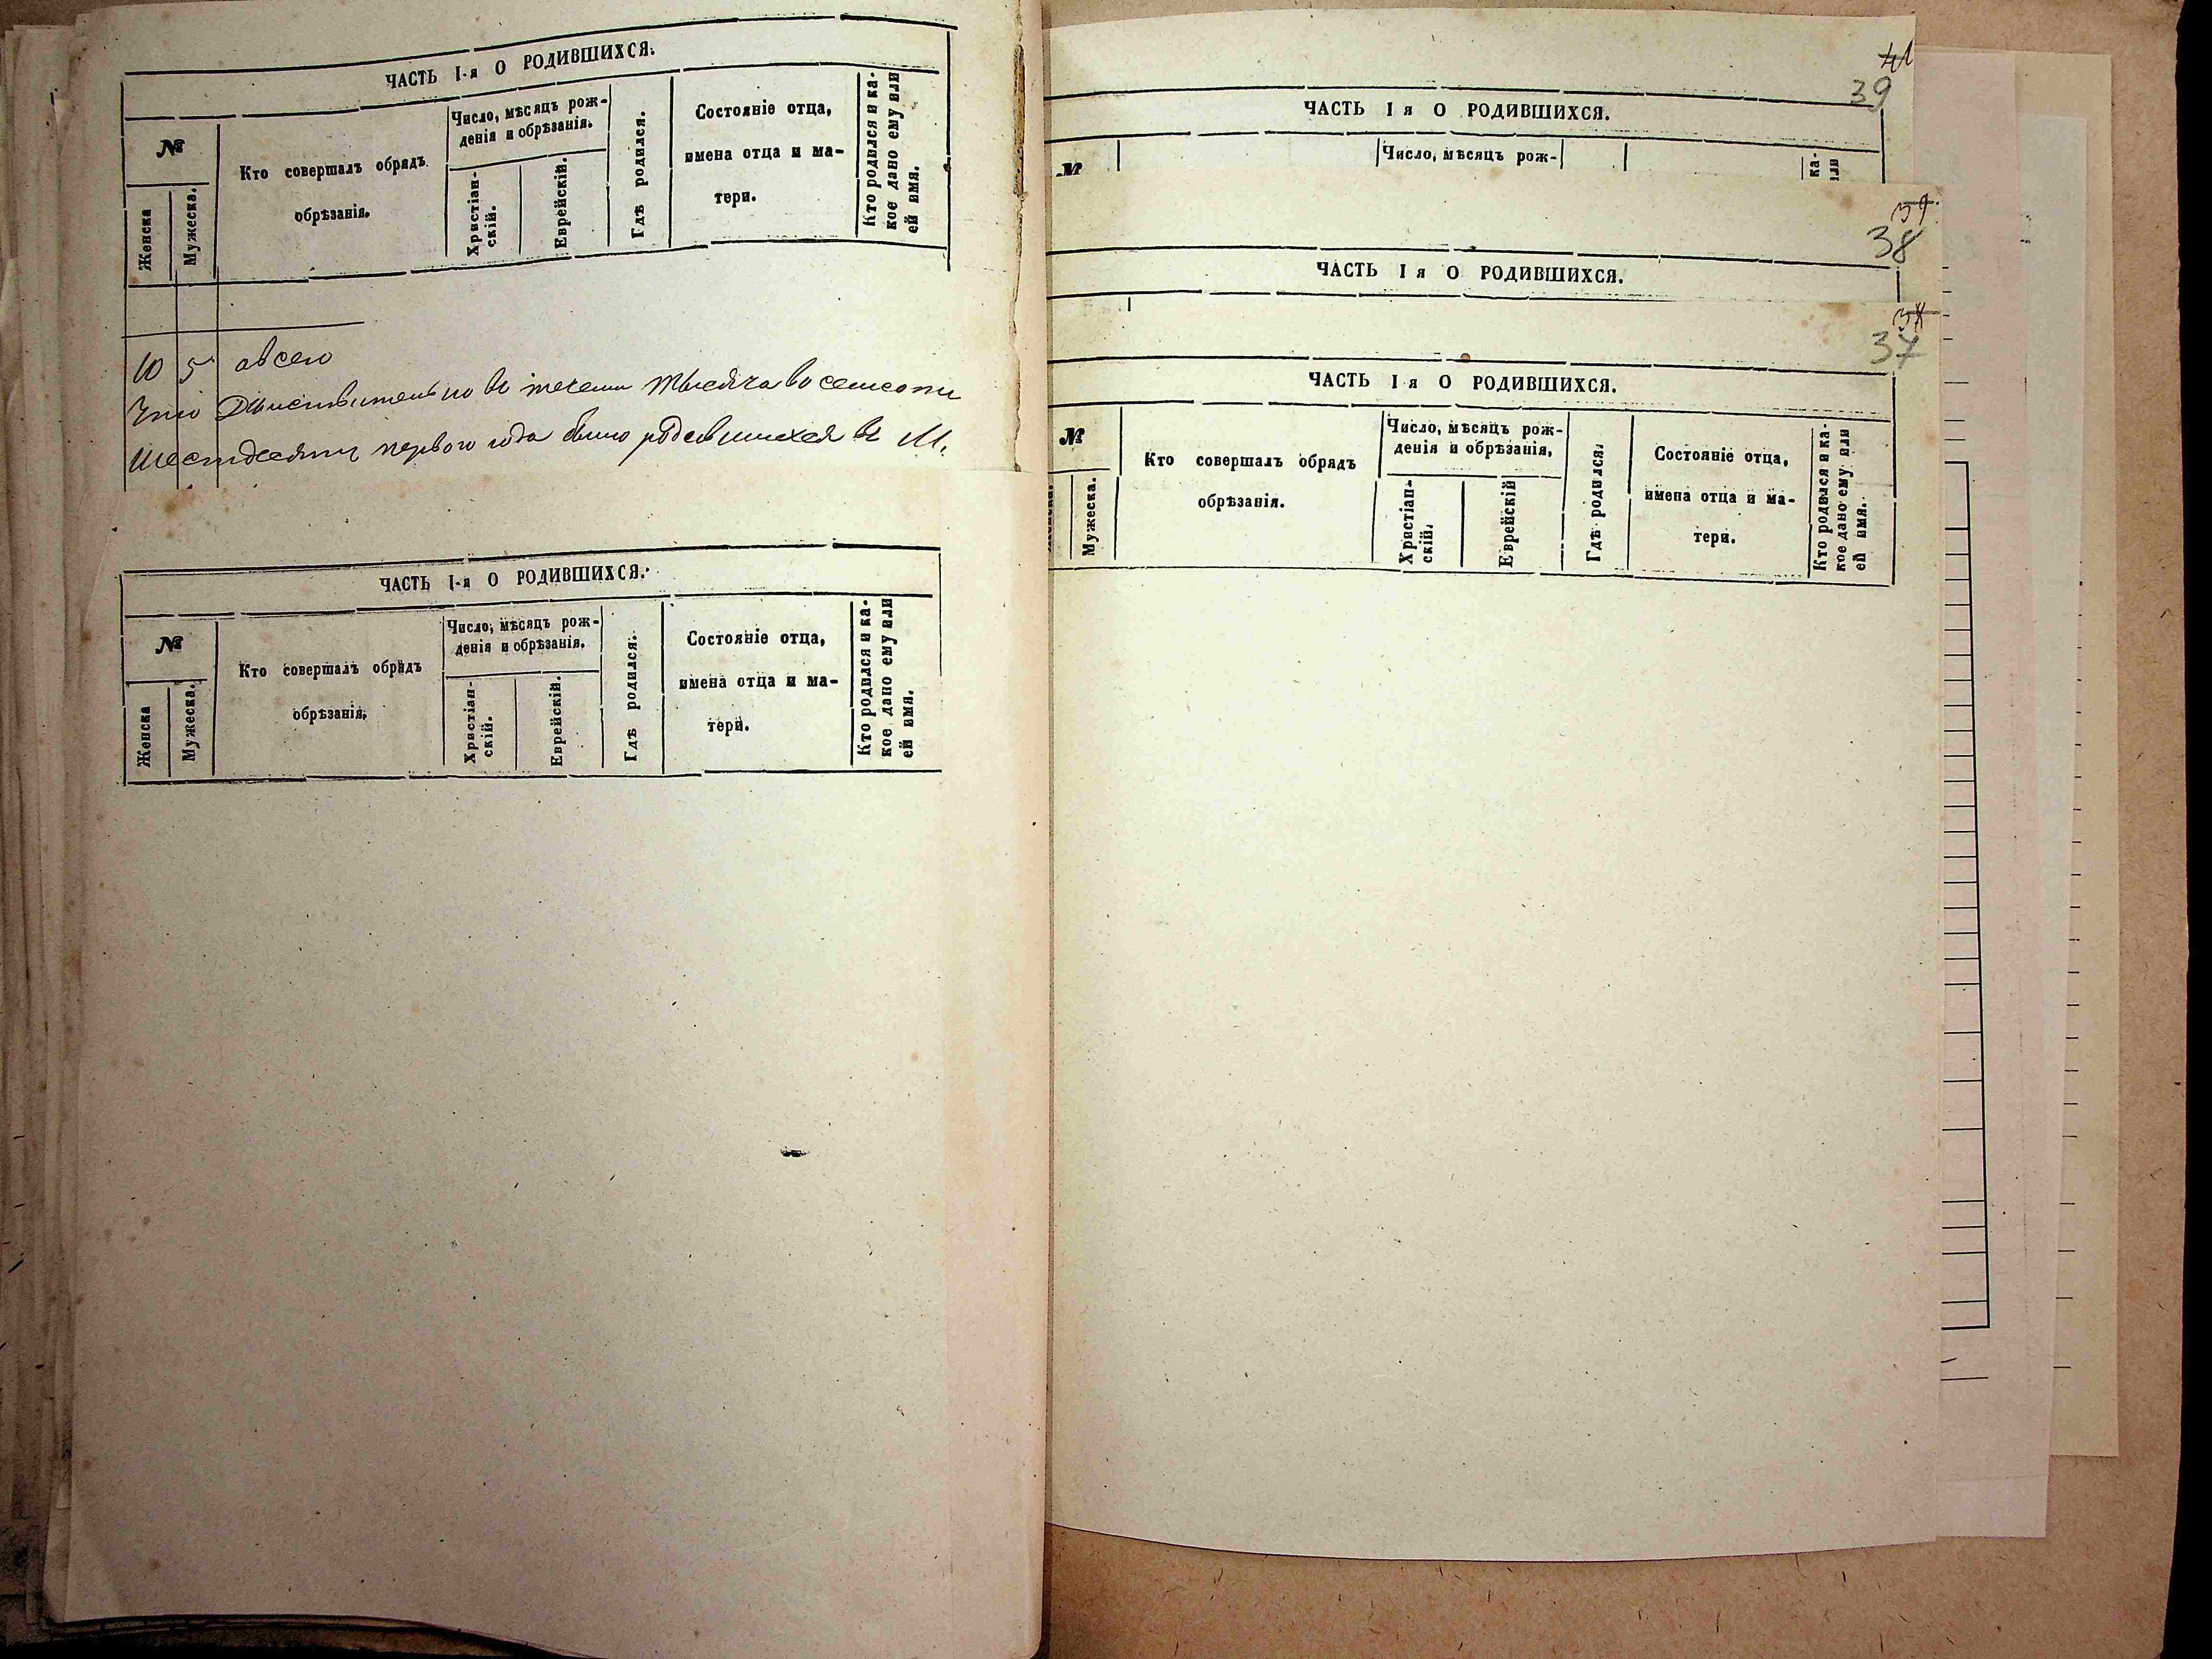 ЧАСТЬ I-я О РОДИВШИХСЯ.
№
Женска
Мужеска.
Кто совершалъ обрядъ
обрѣзанія.
Число, мѣсяцъ рож-
денія и обрѣзанія.
Христіан-
скій.
Еврейскій.
Гдѣ родился.
Состояніе отца,
имена отца и ма-
тери.
Кто родился и ка-
кое дано ему или
ей имя.
10 5 а всего
Что Дѣйствительно въ течении тысяча восемсотъ
шестдесятъ первого года было родившихся въ М.
ЧАСТЬ I-я О РОДИВШИХСЯ.
№
Женска
Мужеска.
Кто совершалъ обрядъ
обрѣзанія.
Число, мѣсяцъ рож-
денія и обрѣзанія.
Христіан-
скій.
Еврейскій.
Гдѣ родился.
Состояніе отца,
имена отца и ма-
тери.
Кто родился и ка-
кое дано ему или
ей имя.
41
39
ЧАСТЬ I я О РОДИВШИХСЯ.
№
Число, мѣсяцъ рож-
ка-
или
39
38
ЧАСТЬ I я О РОДИВШИХСЯ.
37
ЧАСТЬ I я О РОДИВШИХСЯ.
№
Мужеска.
Кто совершалъ обрядъ
обрѣзанія.
Число, мѣсяцъ рож-
денія и обрѣзанія,
Христіан-
скій.
Еврейскій
Гдѣ родился.
Состояніе отца,
имена отца и ма-
тери.
Кто родился и ка-
кое дано ему или
ей имя.